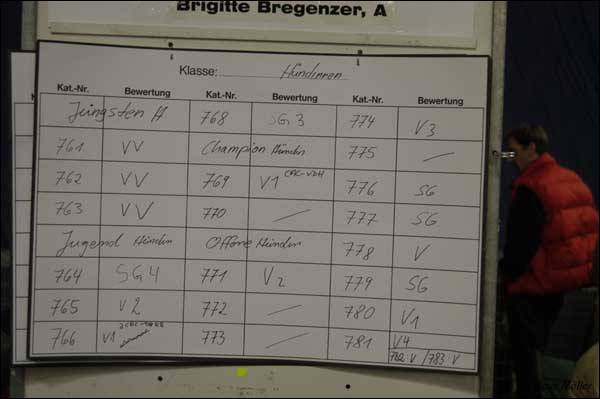 Brigitte Bregenzer, A
Klasse: Hündinnen
Kat.-Nr. Bewertung Kat.-Nr. Bewertung Kat.-Nr. Bewertung
Jüngsten H 768 SG3 774 V3
761 VV Champion Hündin 775 —
762 VV 769 V1 CAC-VDH 776 SG
763 VV 770 — 777 SG
Jugend Hündin Offene Hündin 778 V
764 SG4 771 V2 779 SG
765 V2 772 — 780 V1
766 V1 773 — 781 V4
782: V / 783: V
Möller